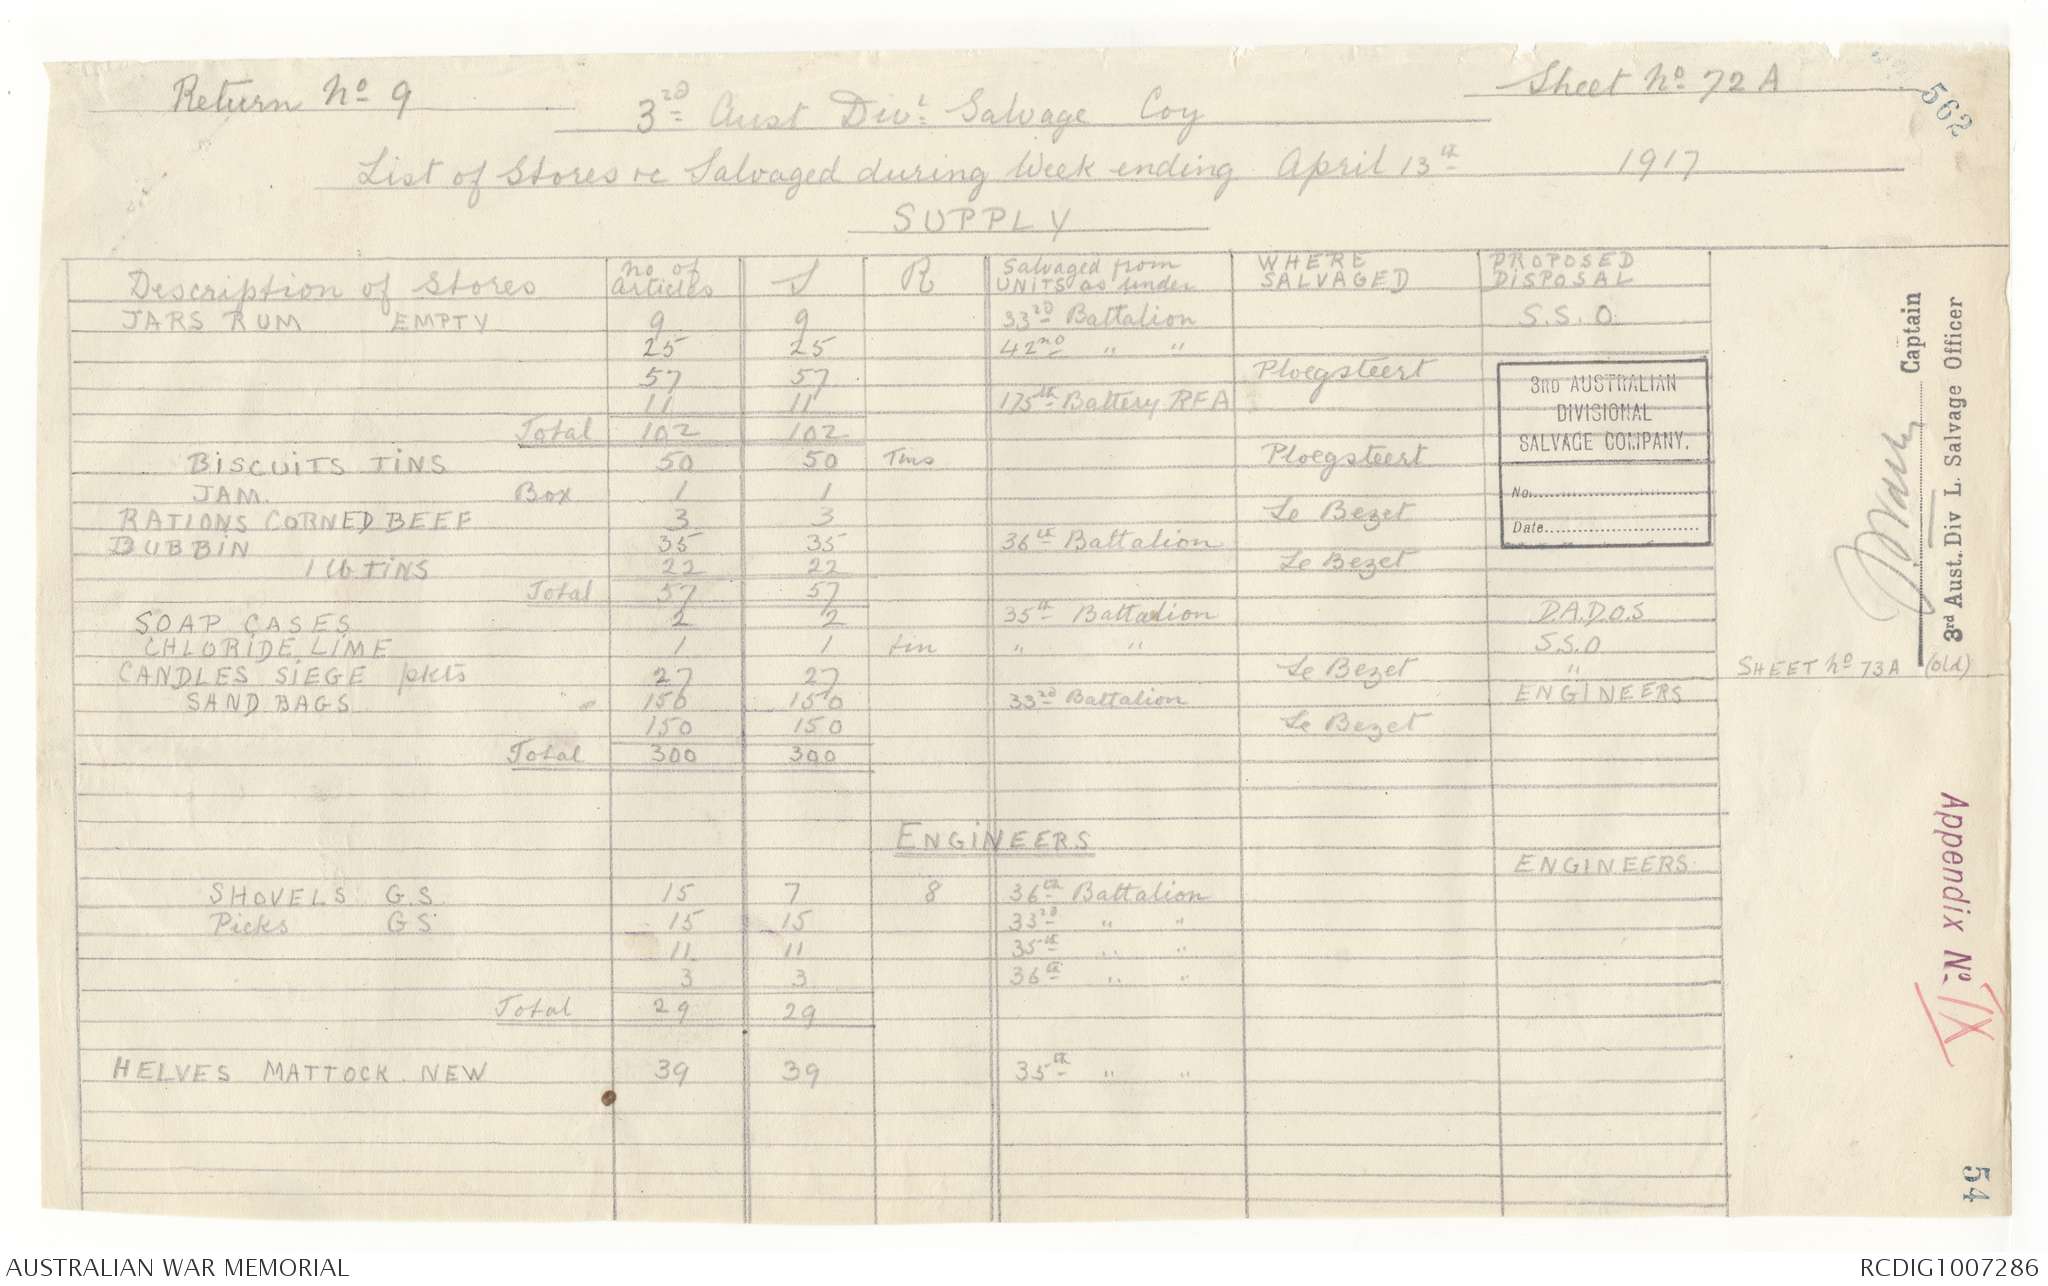 Return No 9
Sheet No 72A
562
3rd Aust Divl Salvage Coy
List of Stores &c Salvaged during Week ending April 13th 1917
SUPPLY
Description of Stores | No of Articles | S | R | Salvaged from UNITS as under | WHERE SALVAGED | PROPOSED DISPOSAL
JARS RUM EMPTY 9 9 33rd Battalion S.S.O.
25 25 42nd " "
57 57 Ploegsteert
11 11 175th Battery RFA
Total 102 102
BISCUITS TINS 50 50 Tins Ploegsteert
JAM. Box 1 1
RATIONS CORNED BEEF 3 3 Le Bezet
DUBBIN 35 35 36th Battalion
1 lb TINS 22 22 Le Bezet
Total 57 57
SOAP CASES 2 2 35th Battalion D.A.D.O.S
CHLORIDE LIME 1 1 tin " " S.S.O
CANDLES SIEGE pkts 27 27 Le Bezet "
SAND BAGS 150 150 33rd Battalion ENGINEERS
150 150 Le Bezet
Total 300 300
ENGINEERS
ENGINEERS
SHOVELS G.S. 15 7 8 36th Battalion
Picks G S 15 15 33rd " "
11 11 35th " "
3 3 36th " "
Total 29 29
HELVES MATTOCK NEW 39 39 35th " "
3RD AUSTRALIAN
DIVISIONAL
SALVAGE COMPANY.
No.
Date
Captain
3rd Aust. Div L. Salvage Officer
SHEET No 73A (old)
Appendix No. IX
54
AUSTRALIAN WAR MEMORIAL
RCDIG1007286